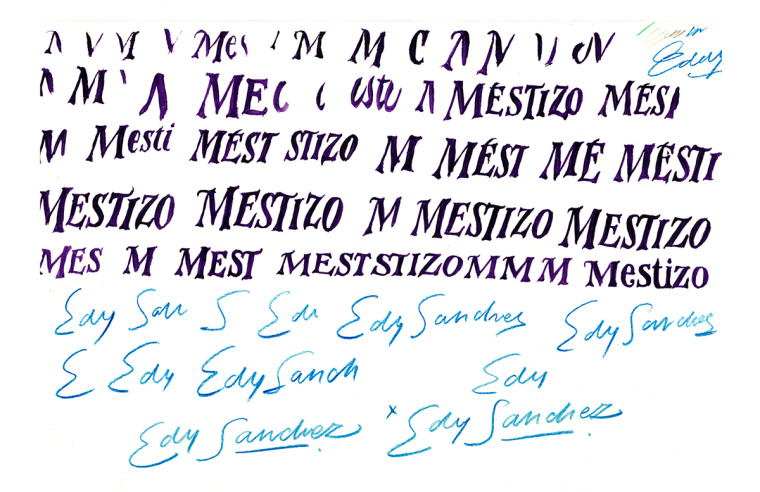 M V M V Mes M M C A N V N
Eddy
M A MEC este A MESTIZO MÉSI
M Mesti MÉST STIZO M MÉST MÉ MÉSTI
MESTIZO MESTIZO M MESTIZO MESTIZO
MES M MEST MESTSTIZOMMM Mestizo
Edy San S Edi Edy Sanches Edy Sanches
E Edy Edy Sanch Edy
Edy Sanchez × Edy Sanchez